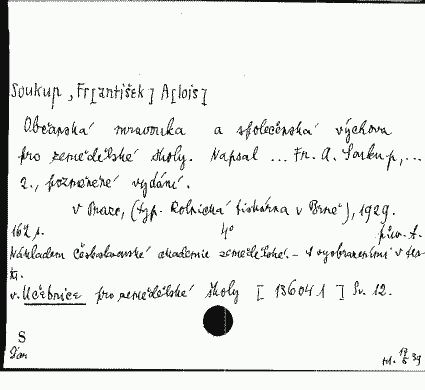 Soukup, Fr[antišek] A[lois]
Občanská mravouka a společenská výchova
pro zemědělské školy. Napsal ... Fr. A. Soukup, ...
2., pozměněné vydání.
v Praze, (typ. Rolnická tiskárna v Brně), 1929.
162 s. 4°
Nákladem Československé akademie zemědělské. – S vyobrazeními v tex-
tu.
v. Učebnice pro zemědělské školy [ 13604.1 ] Sv. 12.
S